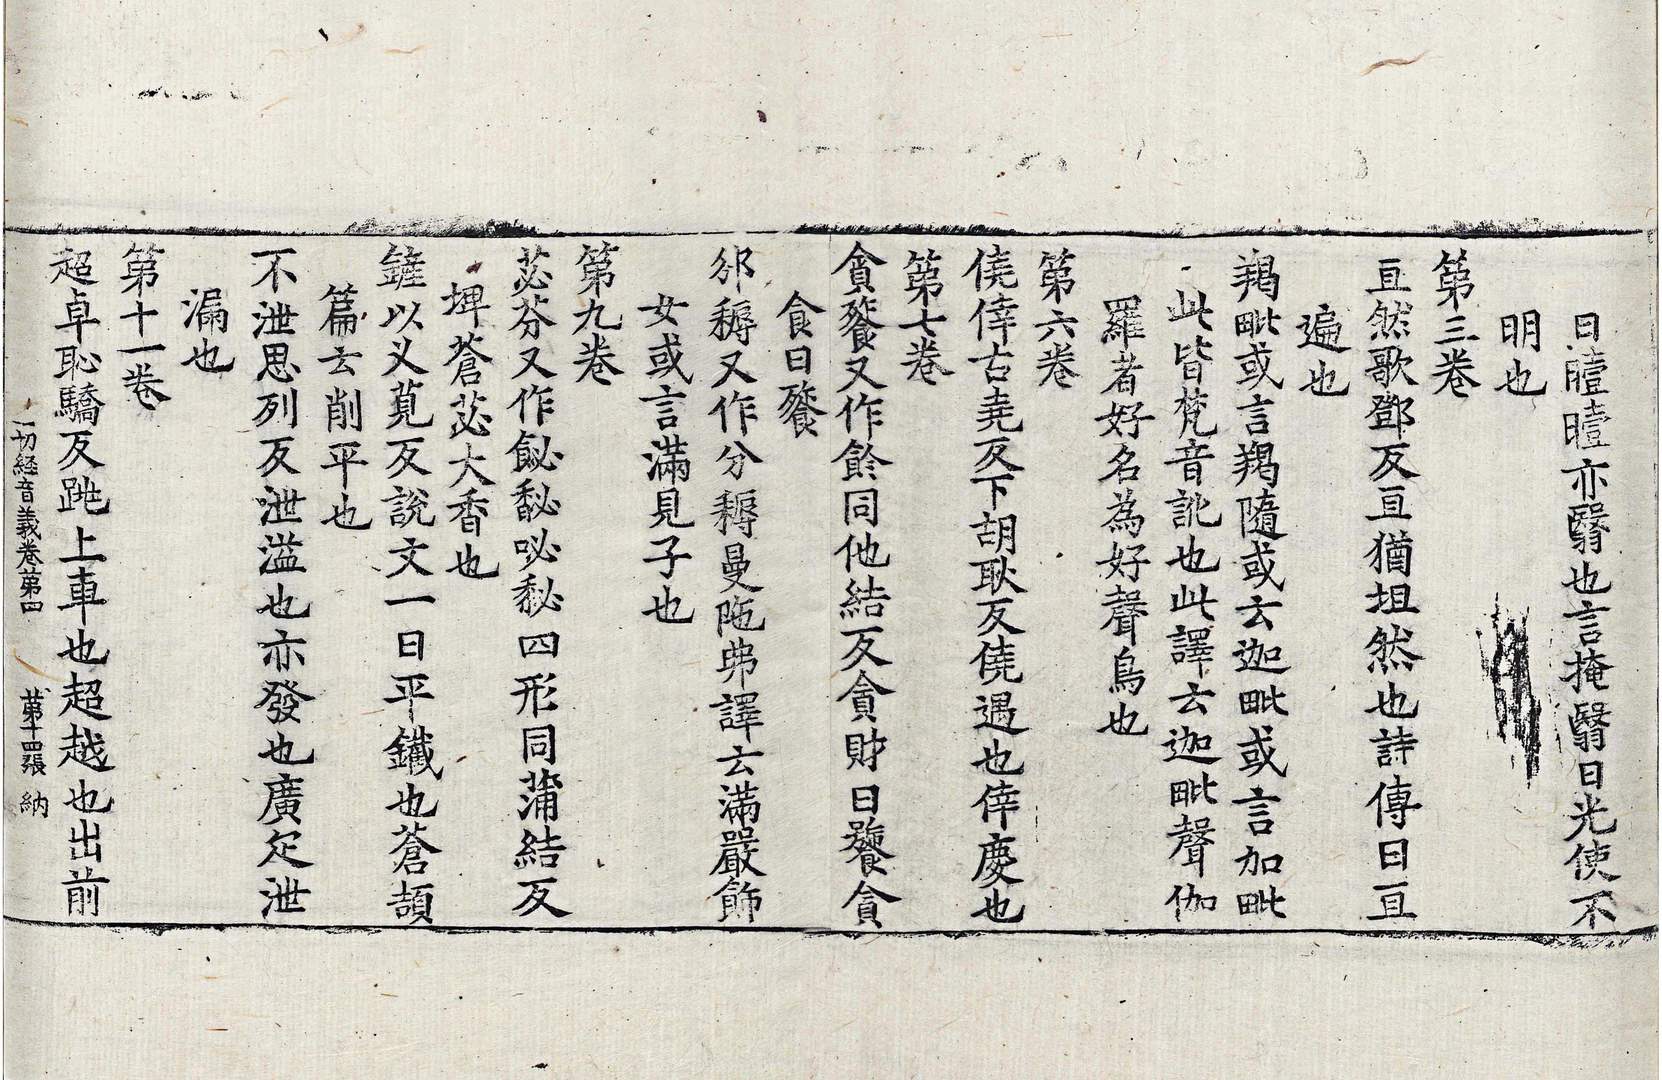 曰曀曀亦翳也言掩翳日光使不
明也
第三卷
亘然歌鄧反亘猶坦然也詩傳曰亘
遍也
羯毗或言羯隨或云迦毗或言加毗
此皆梵音訛也此譯云迦毗聲伽
羅者好名為好聲鳥也
第六卷
僥倖古堯反下胡耿反僥遇也倖慶也
第七卷
貪餮又作飻同他結反貪財曰餮貪
食曰餮
邠耨又作分耨曼陁弗譯云滿嚴飾
女或言滿見子也
第九卷
苾芬又作飶馝咇䅩四形同蒲結反
埤蒼苾大香也
鏟以义莧反說文一曰平鐵也蒼頡
篇云削平也
不泄思列反泄溢也亦發也廣疋泄
漏也
第十一卷
超卓恥驕反跳上車也超越也出前
一切経音義卷第四 第十四張 納